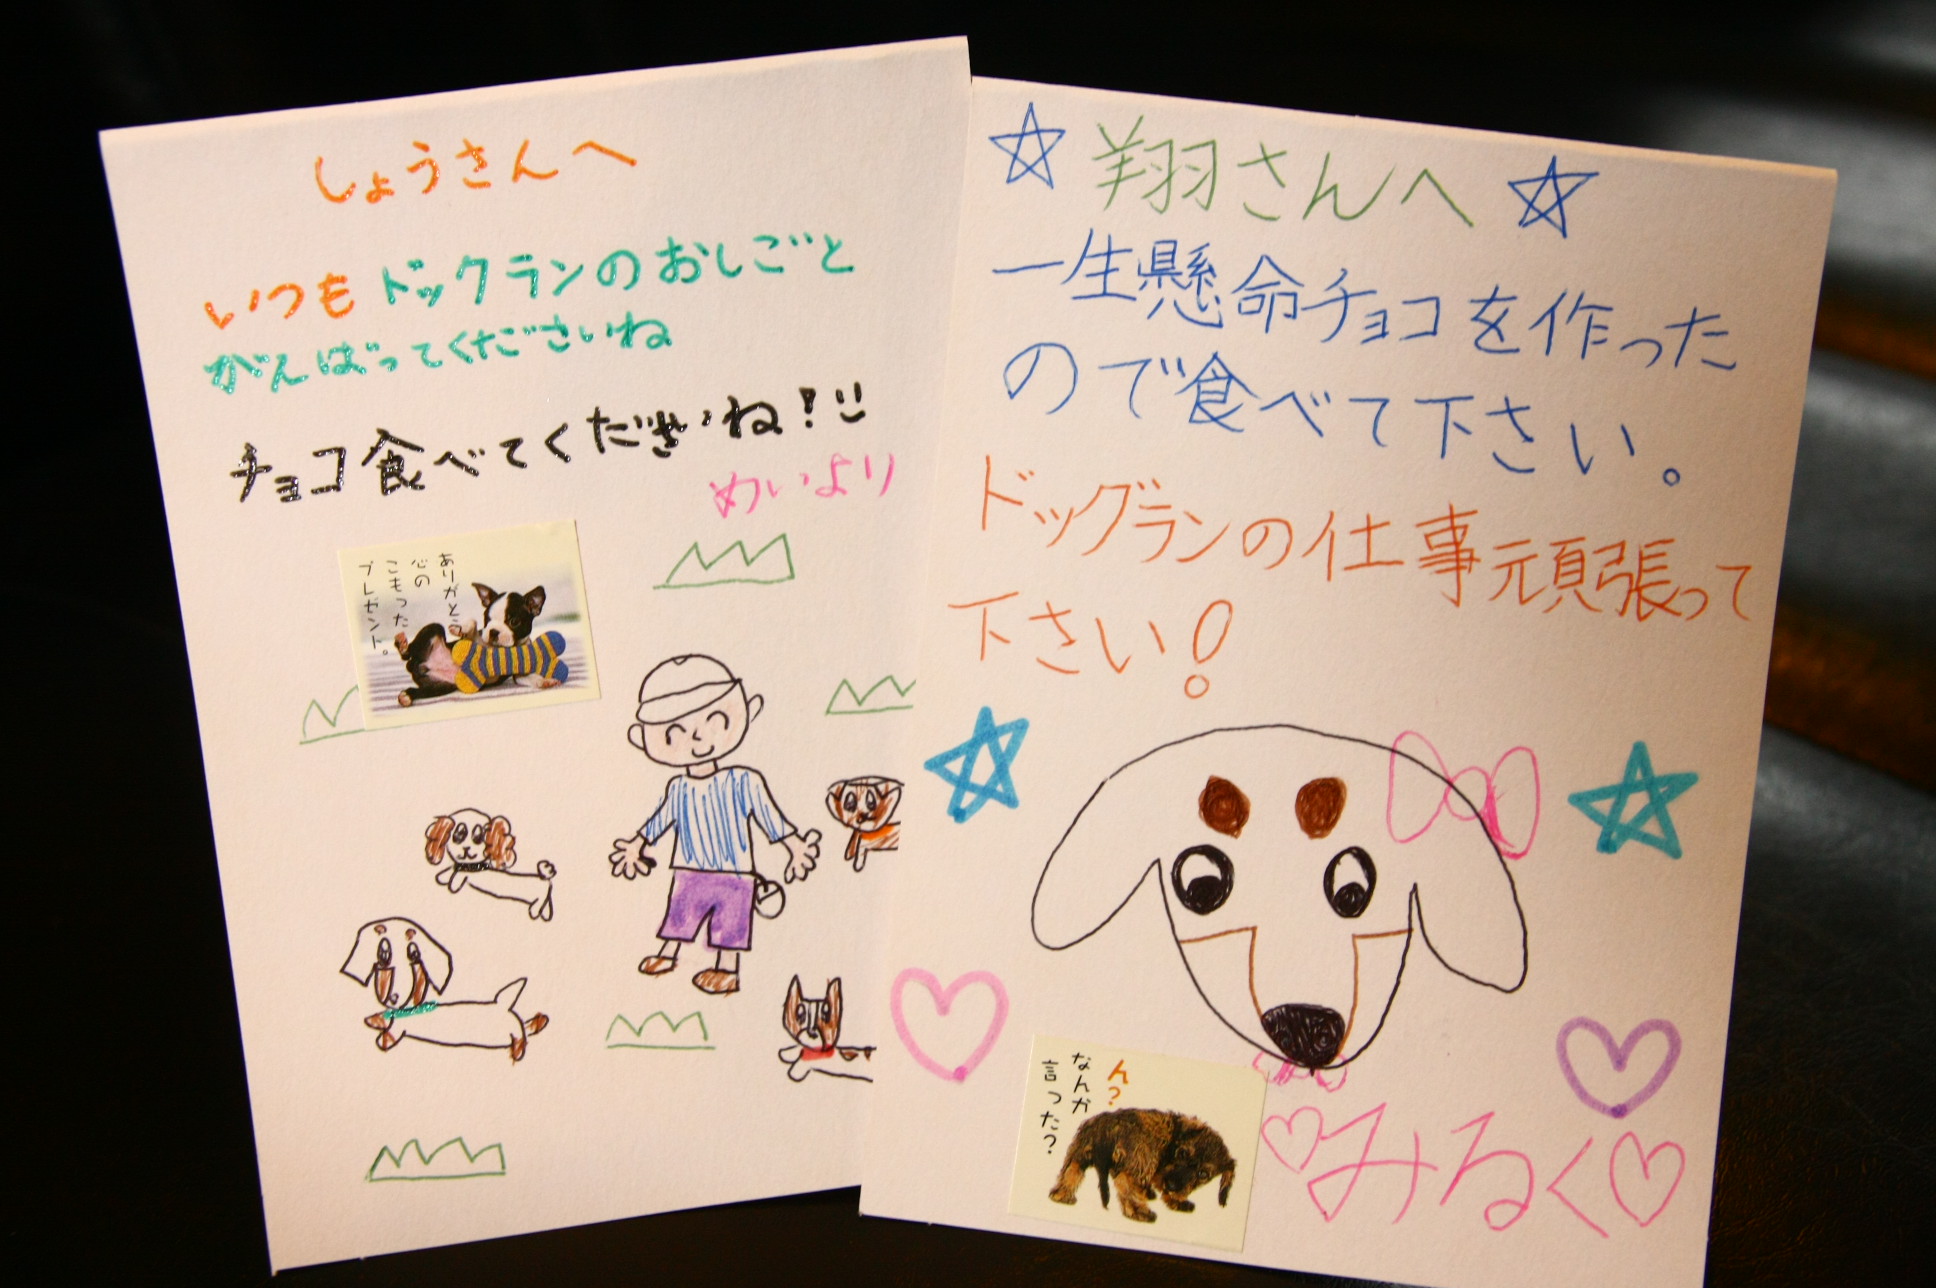 しょうさんへ
いつもドックランのおしごと
がんばってくださいね
チョコ食べてくださいね!
めいより
ありがとう
心の
こもった
プレゼント。
翔さんへ
一生懸命チョコを作った
ので食べて下さい。
ドッグランの仕事頑張って
下さい!
ん?
なんか
言った?
みるく